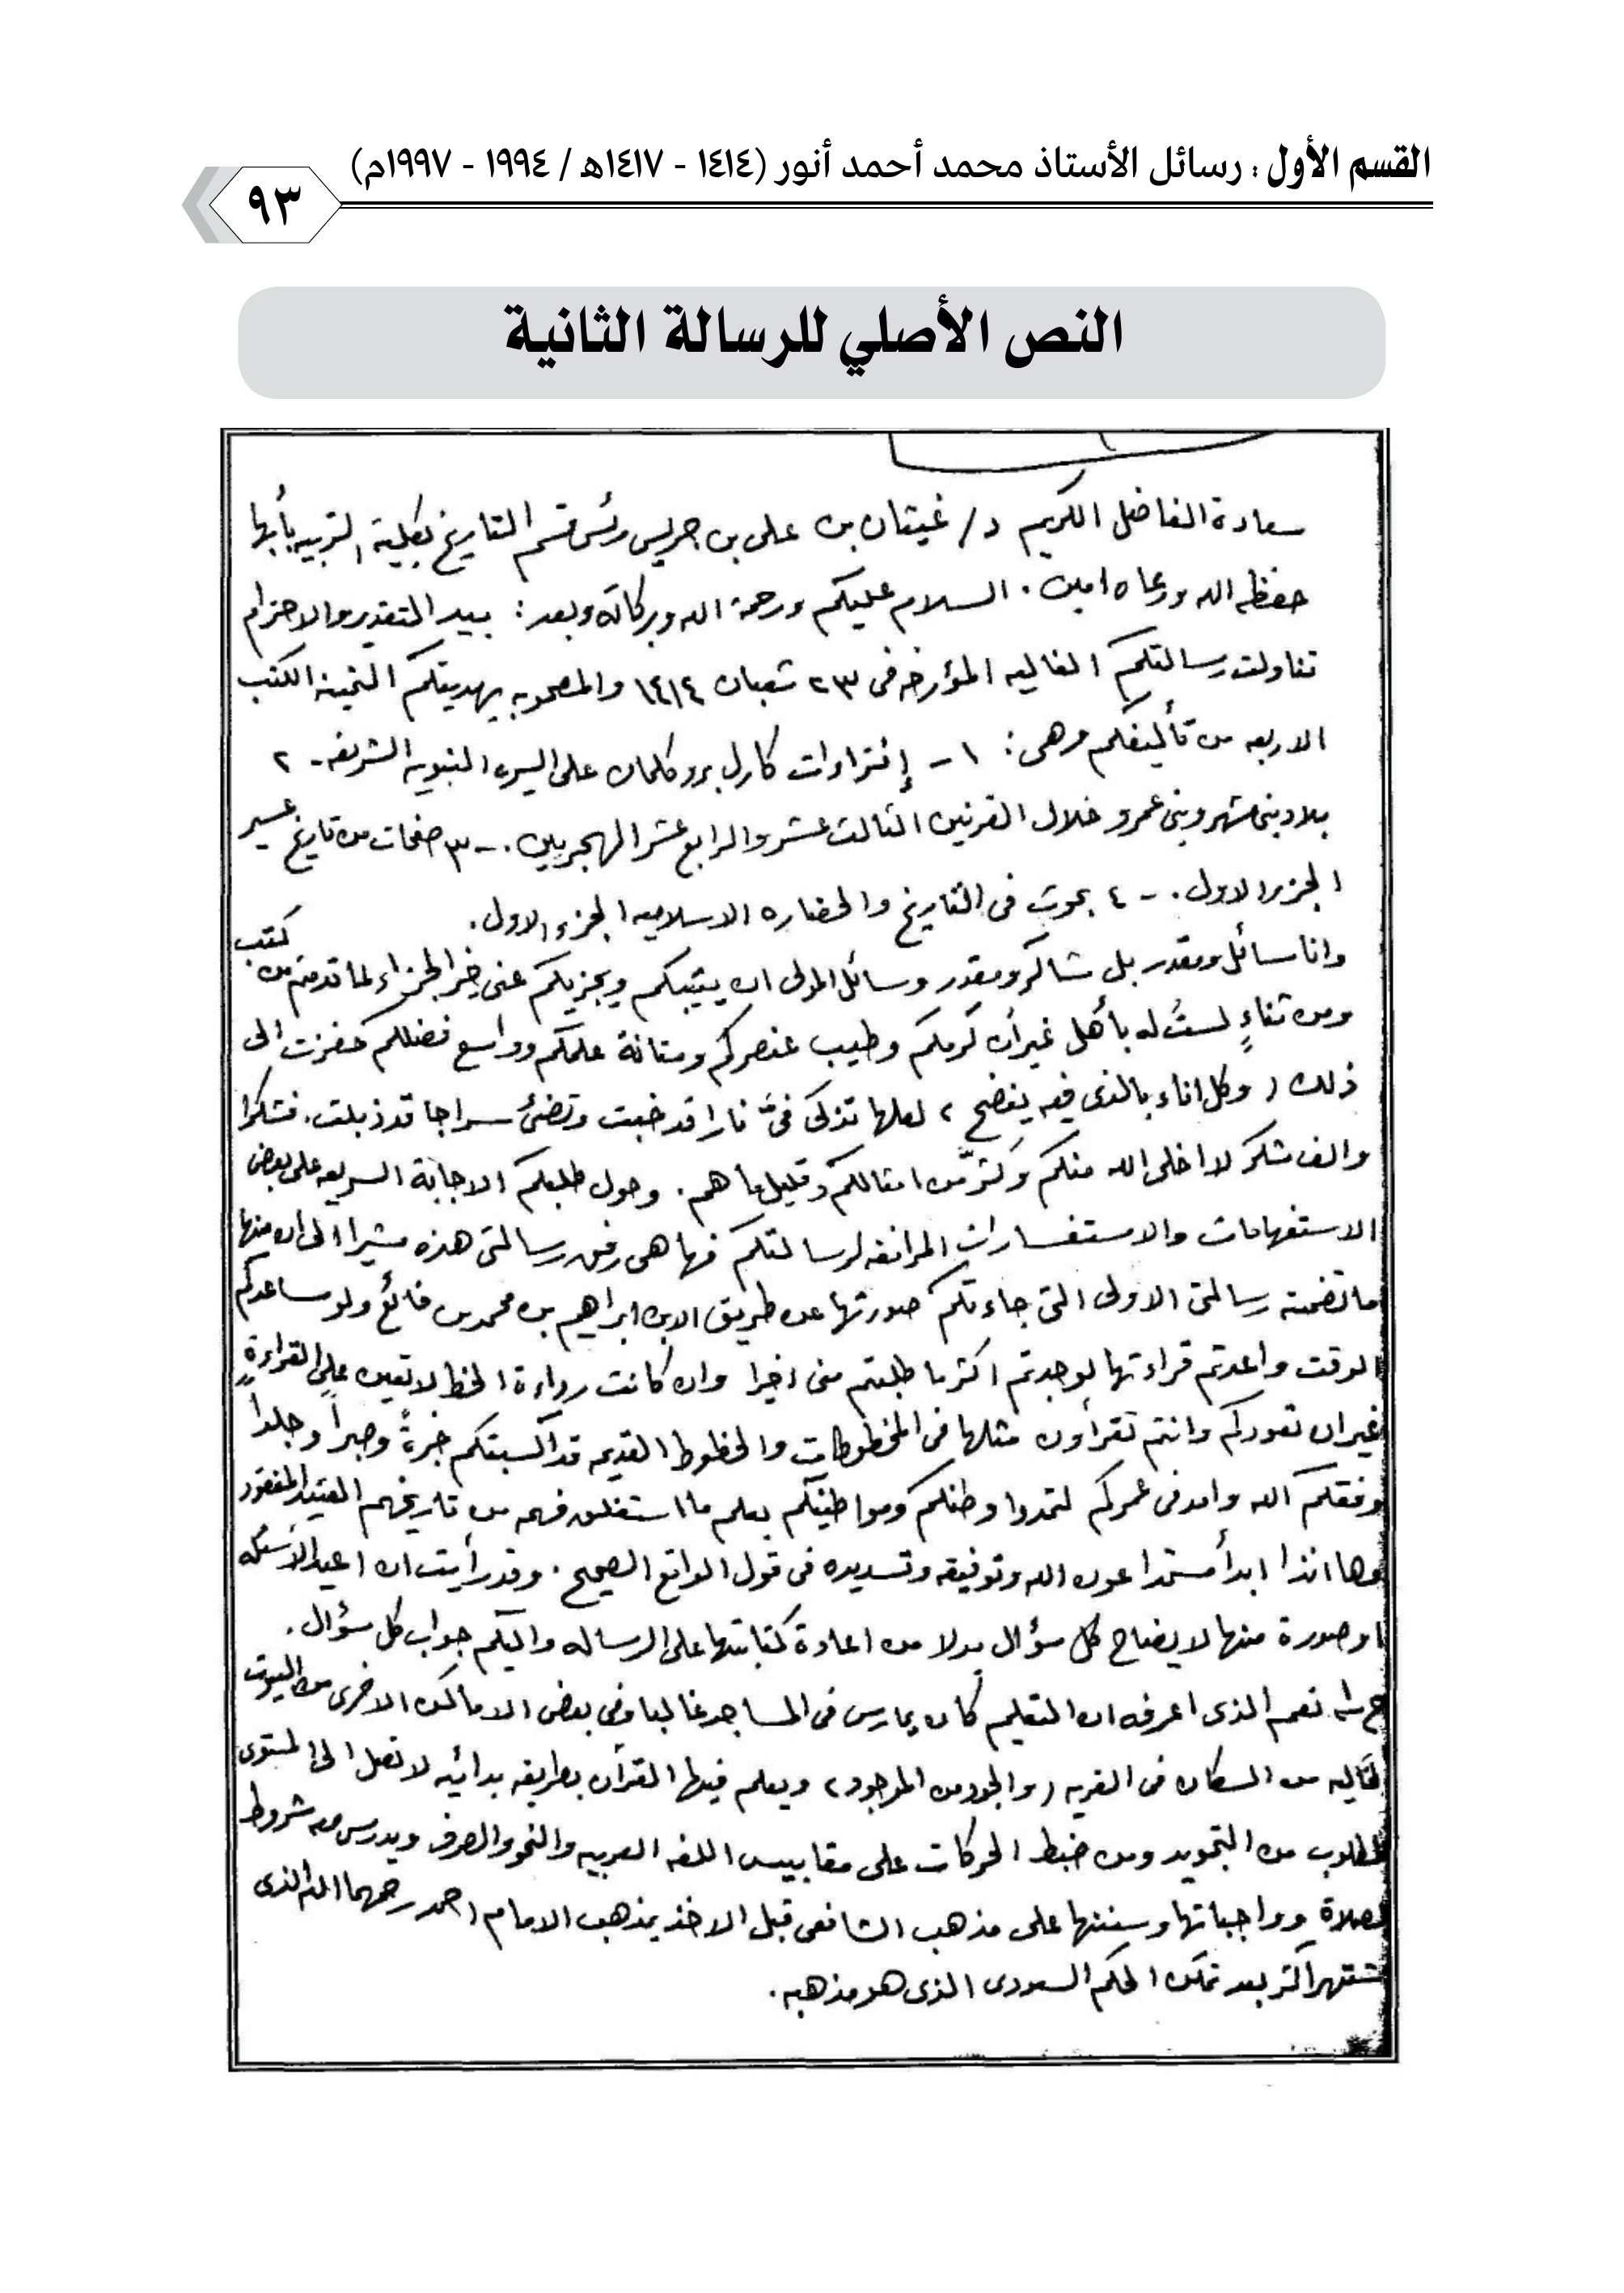 القسم الأول : رسائل الأستاذ محمد أحمد أنور (١٤١٤ - ١٤١٧هـ / ١٩٩٤ - ١٩٩٧م)
٩٣
النص الأصلي للرسالة الثانية
سعادة الفاضل الكريم د/ غيثان بن على بن جريس رئيس قسم التاريخ بكلية التربيه بأبها
حفظه الله ورعاه امين . السلام عليكم ورحمة الله وبركاته وبعد : بيد التقدير والاحترام
تناولت رسالتكم الغاليه المؤرخه فى ٢٣ شعبان ١٤١٤ والمصحوبه بهديتكم الثمينه الكتب
الاربعه من تأليفكم وهى : ١ - إفتراءات كارل بروكلمان على السيره النبويه الشريفه - ٢
بلاد بنى شهر وبنى عمرو خلال القرنين الثالث عشر والرابع عشر الهجريين . - ٣ صفحات من تاريخ عسير
الجزء الاول . - ٤ بحوث فى التاريخ والحضاره الاسلاميه الجزء الاول .
وانا سائل ومقدر بل شاكر ومقدر وسائل المولى ان يثيبكم ويجزيكم عنى خير الجزاء لما قدمتم من كتب
ومن ثناءٍ لستُ له بأهل غير أن كرمكم وطيب عنصركم ومتانة علمكم وواسع فضلكم حفزت الى
ذلك ( وكل اناء بالذى فيه ينضح ) لعلها تذكى فىَّ نارا قد خبت وتضئ سراجا قد ذبلت . فشكرا
والف شكر لا اخلى الله منكم وكثّر من امثالكم وقليل ما هم . وحول طلبكم الاجابة السريعه على بعض
الاستفهامات والاستفسارات المرافقه لرسالتكم فها هى رفق رسالتى هذه مشيرا الى ان منها
ما تضمنته رسالتى الاولى التى جاءتكم صورتها عن طريق الابن ابراهيم بن محمد بن فائع ولو ساعدكم
الوقت واعدتم قراءتها لوجدتم اكثر ما طلبتم منى اخيرا وان كانت رداءة الخط لا تعين على القراءةِ
غير ان تعودكم وانتم تقرأون مثلها فى المخطوطات والخطوط القديمه قد اكسبتكم خبرةً وصبراً وجلداً
وفقكم الله وامد فى عمركم لتمدوا وطنكم ومواطنيكم بعلم ما استغلق فهمه من تاريخهم العتيد المفقود
وها انذا ابدأ مستمدا عون الله وتوفيقه وتسديده فى قول الواقع الصحيح . وقد رأيت ان اعيد الأسئله
او صورة منها لايضاح كل سؤال بدلا من اعادة كتابتها على الرساله واليكم جواب كل سؤال .
نعم الذى اعرفه ان التعليم كان يمارس فى المساجد غالبا وفى بعض الاماكن الاخرى من البيوت
الخاليه من السكان فى القريه ( والجود من الموجود ) ويعلم فيها القرآن بطريقه بدائيه لا تصل الى المستوى
المطلوب من التجويد ومن ضبط الحركات على مقاييس اللغه العربيه والنحو والصرف ويدرس معه شروط
الصلاة وواجباتها وسننها على مذهب الشافعى قبل الاخذ بمذهب الامام احمد رحمهما الله الذى
اشتهر اكثر بعد تمكن الحكم السعودى الذى هو مذهبه .